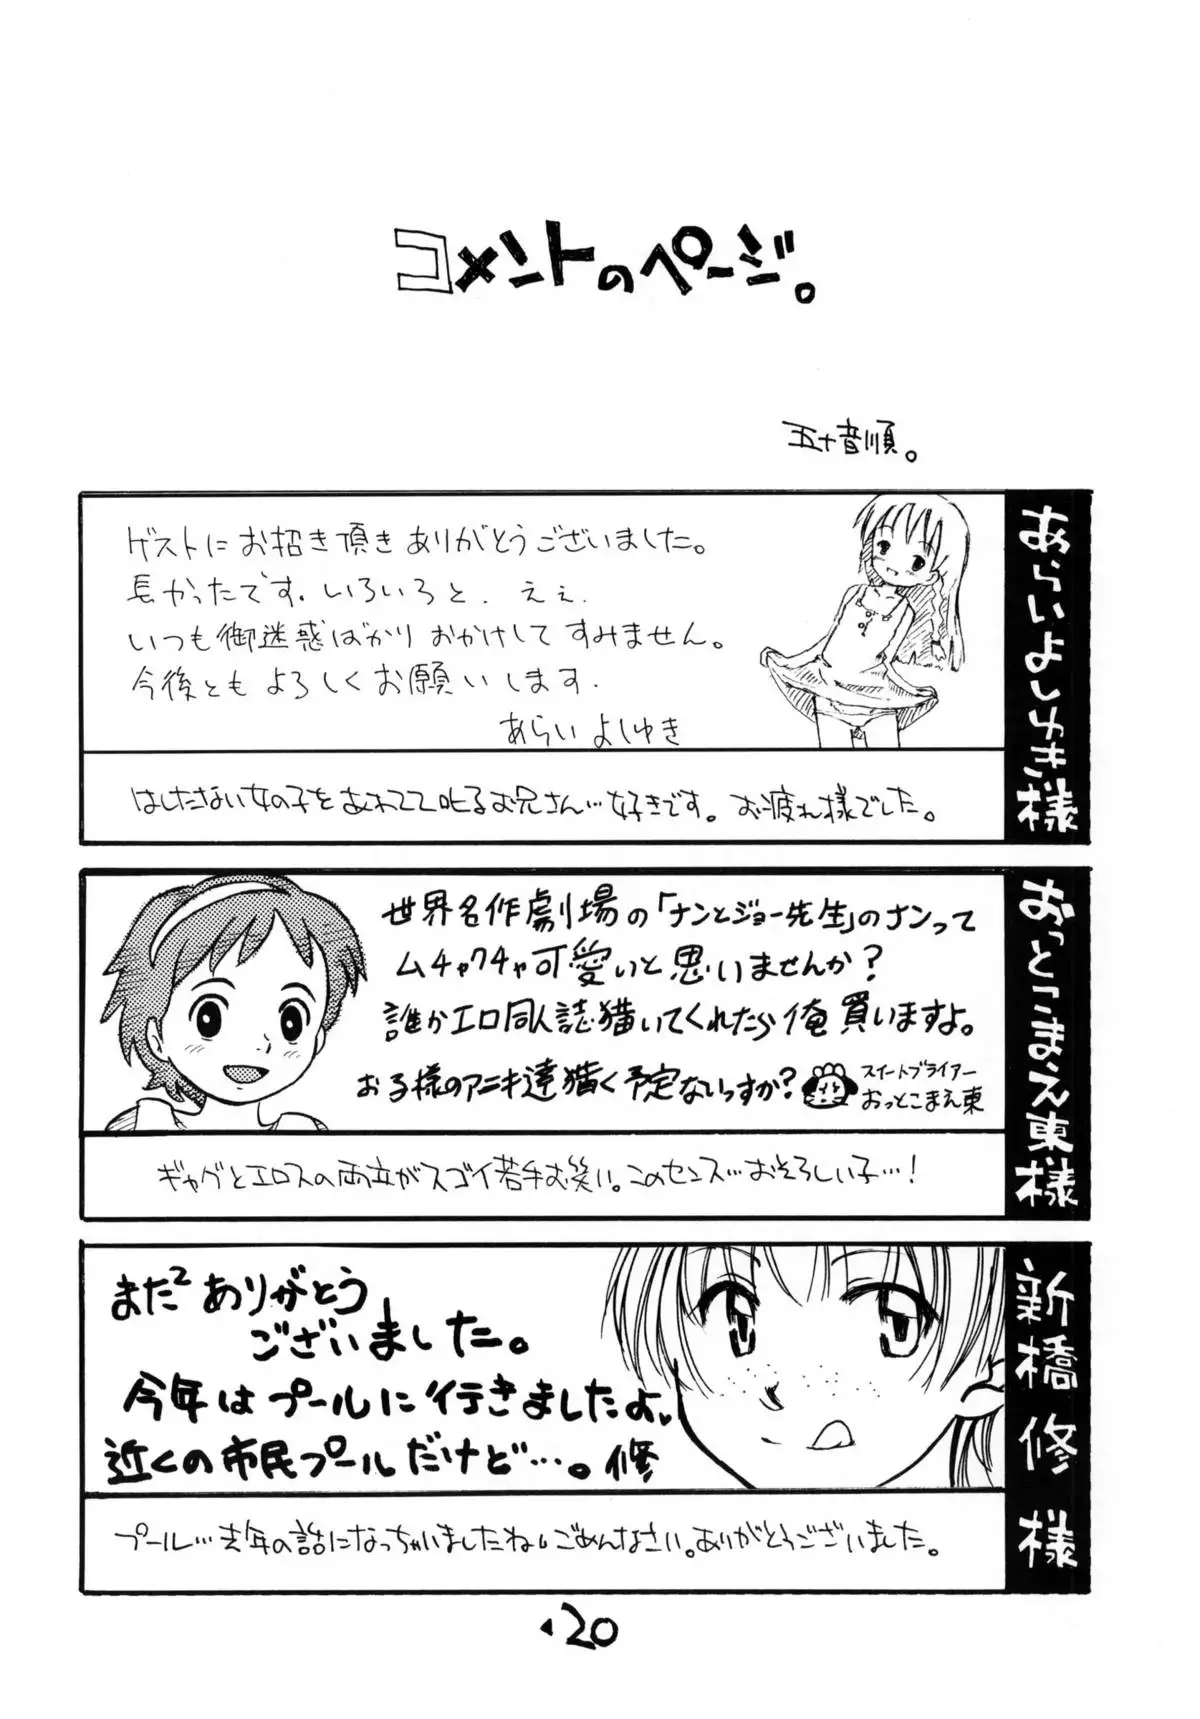 コメントのページ。
五十音順。
あらいよしゆき様
ゲストにお招き頂きありがとうございました。
長かったです. いろいろと. ええ.
いつも御迷惑ばかりおかけしてすみません。
今後ともよろしくお願いします.
あらい よしゆき
はしたない女の子をあわてて叱るお兄さん…好きです。お疲れ様でした。
おっとこまえ東様
世界名作劇場の「ナンとジョー先生」のナンって
ムチャクチャ可愛いと思いませんか?
誰かエロ同人誌描いてくれたら俺買いますよ。
お子様のアニキ達描く予定ないっすか?
スイートブライアー
おっとこまえ東
ギャグとエロスの両立がスゴイ若手お笑い。このセンス…おそろしい子…!
新橋修様
また²ありがとう
ございました。
今年はプールに行きましたよ、
近くの市民プールだけど…。修
プール…去年の話になっちゃいましたね。ごめんなさい。ありがとうございました。
20